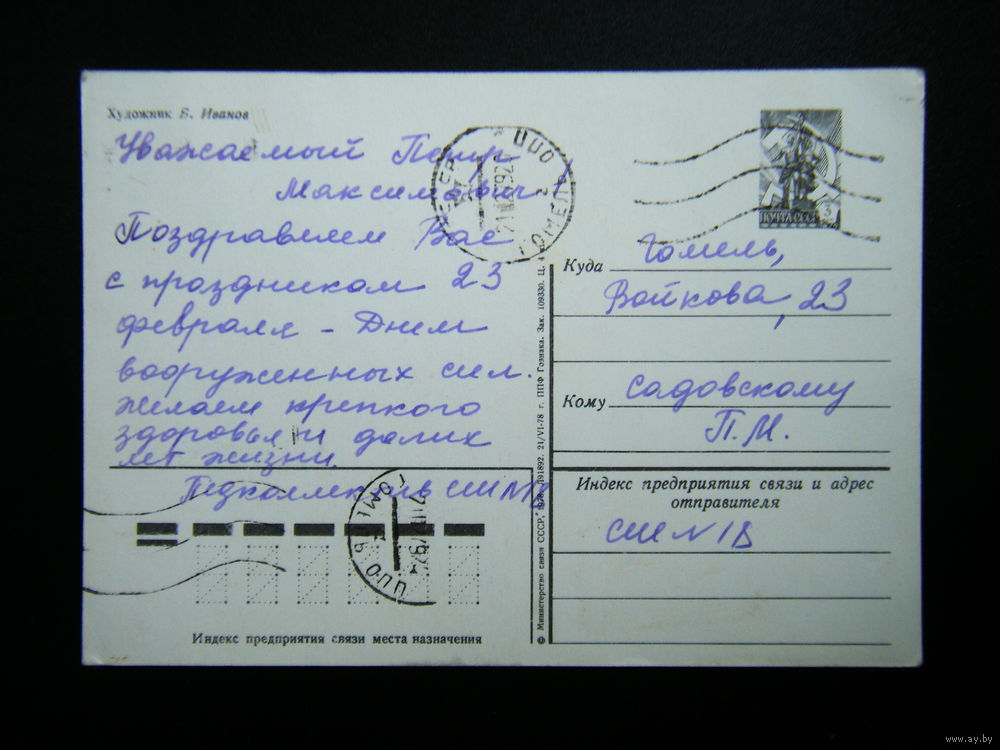 Художник Б. Иванов
Уважаемый Петр
Максимович!
Поздравляем Вас
с праздником 23
февраля - Днем
вооруженных сил.
желаем крепкого
здоровья и долгих
лет жизни.
Педколлектив СШ N
ПОЧТА СССР
Куда Гомель,
Войкова, 23
Кому Садовскому
П.М.
Индекс предприятия связи и адрес
отправителя
СШ N
Индекс предприятия связи места назначения
© Министерство связи СССР, 1978. 191892. 21/VI-78 г. ППФ Гознака. Зак. 109330. Ц. 4
ЦПО ГОМЕЛЬ
ГОМЕЛЬ ЦПО
www.ay.by